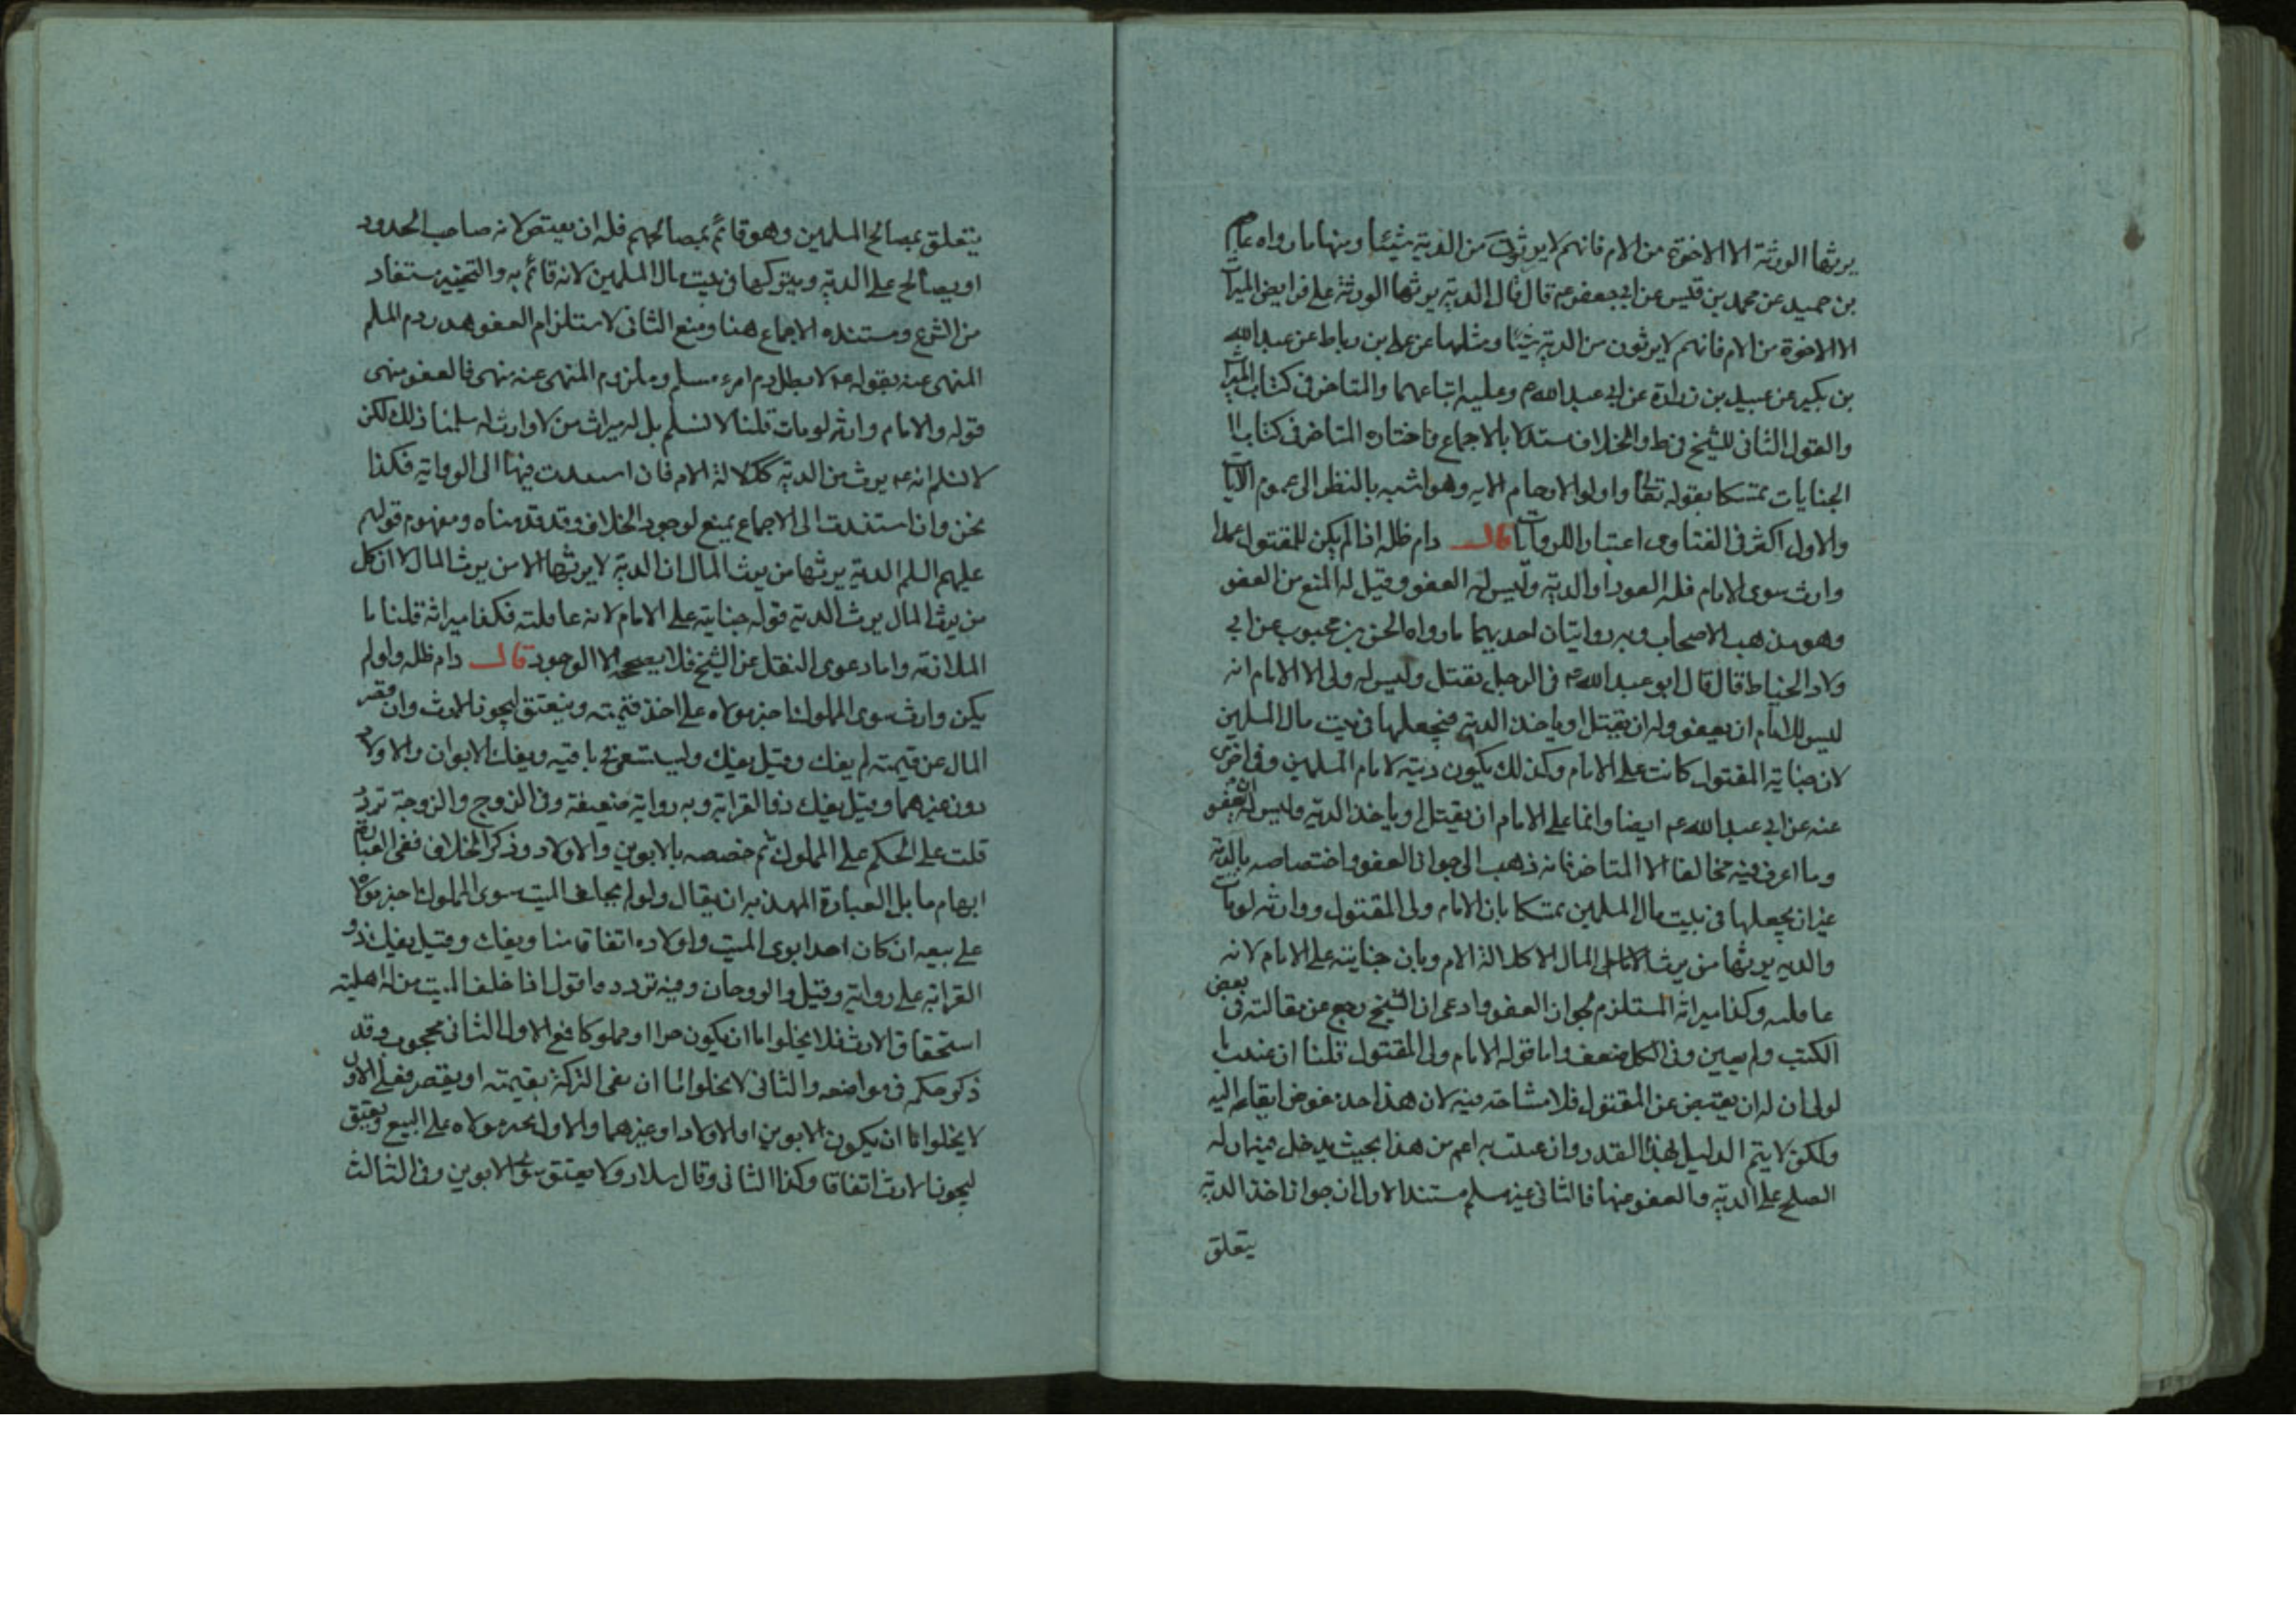 يرثها الورثة الا الاخوة من الام فانهم لا يرثون من الدية شيئا ومنها ما رواه عاصم
بن حميد عن محمد بن قيس عن ابي جعفر ع قال قال الدية يرثها الورثة على فرايض الميراث
الا الاخوة من الام فانهم لا يرثون من الدية شيئا ومثلها عن علي بن رباط عن عبدالله
بن بكير عن عبيد بن زرارة عن ابي عبدالله ع وعليه اتباعهما والمتاخر في كتاب الميراث
والقول الثاني للشيخ في ط والخلاف مستدلا بالاجماع واختاره المتاخر في كتاب
الجنايات متمسكا بقوله تعالى واولوا الارحام الايه وهو اشبه بالنظر الى عموم الآيات
والاول اكثر في الفتاوى اعتبارا للروايات قال دام ظله اذا لم يكن للمقتول عمدا
وارث سوى الامام فله العود او الدية وليس له العفو وقيل له المنع من العفو
وهو مذهب الاصحاب وبه روايتان احديهما ما رواه الحسن بن محبوب عن ابي
ولاد الحناط قال قال ابو عبدالله ع في الرجل يقتل وليس له ولى الا الامام انه
ليس للامام ان يعفو وله ان يقتل او ياخذ الدية فيجعلها في بيت مال المسلمين
لان جناية المقتول كانت على الامام وكذلك يكون ديته لامام المسلمين وفي اخرى
عنه عن ابي عبدالله ع ايضا وانما على الامام ان يقتل او ياخذ الدية وليس له ان يعفو
وما اعرف فيه مخالفا الا المتاخر فانه ذهب الى جواز العفو واختصاصه بالدية
غير ان يجعلها في بيت مال المسلمين متمسكا بان الامام ولى المقتول ووارثه لو مات
والديه يرثها من يرث المال الا كلالة الام وبان جنايته على الامام لانه
عاقله وكذا ميراثه المستلزم لجواز العفو وادعى ان الشيخ رجع عن مقالته في بعض
الكتب ولم يعين وفي الكل ضعف واما قوله الامام ولى المقتول قلنا ان عنيت
لولى ان له ان يقتص عن المقتول فلا مشاحة فيه لان هذا احد
ولكن لا يتم الدليل بهذا القدر وان عنيت به اعم من هذا بحيث يدخل فيه ان له
الصلح على الدية والعفو عنها فالثاني غير مسلم مستند الاول ان جواز اخذ الدية
يتعلق
يتعلق بمصالح المسلمين وهو قائم بمصالحهم فله ان يقتص لانه صاحب الحدود
او يصالح على الدية ويتركها في بيت مال المسلمين لانه قائم به والتخيير مستفاد
من الشرع ومستنده الاجماع هنا ومنع الثاني لاستلزام العفو هدر دم المسلم
المنهى عنه بقوله ع لا يطل دم امرء مسلم وملزوم المنهى عنه منهى فالعفو منهى
قوله والامام وارثه لو مات قلنا لا نسلم بل له ميراث من لا وارث له سلمنا ذلك لكن
لا نسلم انه ع يرث من الدية ككلالة الام فان استندت فيها الى الرواية فكذا
نحن وان استندت الى الاجماع يمنع لوجود الخلاف وقد قدمناه ومفهوم قولهم
عليهم السلم الدية يرثها من يرث المال ان الدية لا يرثها الا من يرث المال لا ان كل
من يرث المال يرث الدية قوله جنايته على الامام لانه عاقلته فكذا ميراثه قلنا ما
الملازمة واما دعوى النقل عن الشيخ فلا يصححه الا الوجود قال دام ظله ولو لم
يكن وارث سوى المملوك اجبر مولاه على اخذ قيمته وينعتق ليجوز الارث وان قصر
المال عن قيمته لم يفك وقيل يفك وليستسعى في باقيه ويفك الابوان والاولاد
دون غيرهما وقيل يفك ذو القرابة وبه رواية ضعيفة وفي الزوج والزوجة تردد
قلت على الحكم على المملوك ثم خصصه بالابوين والاولاد وذكر الخلاف ففي العبارة
ابهام ما بل العبارة المهذبه ان يقال ولو لم يخلف الميت سوى المملوك اجبر مولاه
على بيعه ان كان احد ابوى الميت واولاده اتفاقا منا ويفك وقيل يفك ذو
القرابة على رواية وقيل والزوجان وفيه تردد واقول اذا خلف الميت من له اهلية
استحقاق الارث فلا يخلوا اما ان يكون حرا او مملوكا فمع الاول الثاني محجوب وقد
ذكر حكمه في مواضعه والثاني لا يخلوا اما ان يفى التركة بقيمته او يقصر فعلى الاول
لا يخلوا اما ان يكون الابوين او الاولاد او غيرهما والاول يجبر مولاه على البيع ويعتق
ليجوز الارث اتفاقا وكذا الثاني وقال سلار ولا يعتق سوى الابوين وفي الثالث